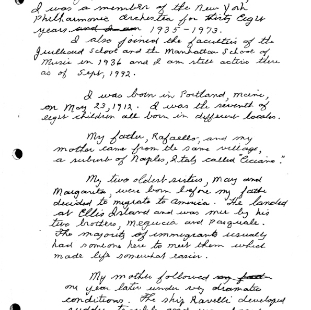 I was a member of the New York
Philharmonic Orchestra for thirty eight
years 1935-1973.
I also joined the faculties of the
Juilliard School and the Manhattan School of
Music in 1936 and I am still active there
as of Sept, 1992.
I was born in Portland, Maine,
on May 23, 1912. I was the seventh of
eight children all born in different locales.
My father, Rafaello, and my
mother came from the same village,
a suburb of Naples, Italy called "Cicciano."
My two oldest sisters, May and
Margarita, were born before my father
decided to migrate to America. He landed
at Ellis Island and was met by his
two brothers, and Pasquale.
The majority of immigrants usually
had someone here to meet them which
made life somewhat easier.
My mother followed
one year later under very dramatic
conditions. The ship Ravelli developed